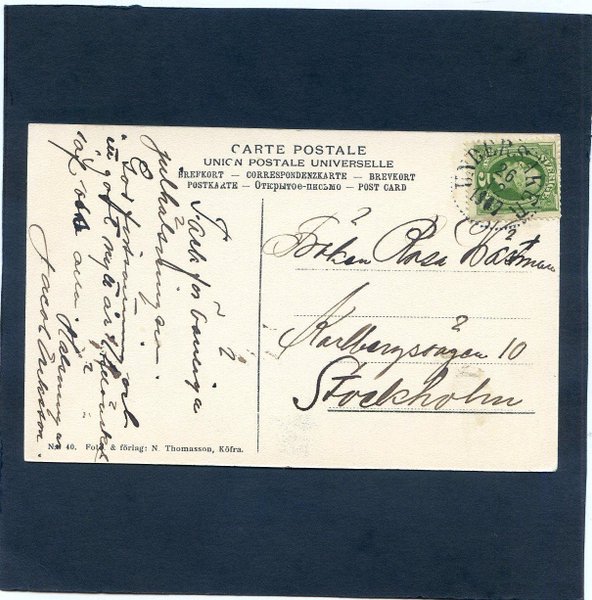 CARTE POSTALE
UNION POSTALE UNIVERSELLE
BREFKORT — CORRESPONDENZKARTE — BREVKORT
POSTKARTE — Открытое-письмо — POST CARD
Tack för vänliga
julhälsningen.
En
God fortsättning och
ett godt nytt år tillönskas
af oss
Jacob
Fröken Rosa
Karlbergsvägen 10
Stockholm
No. 40. Foto. & förlag: N Thomasson, Köfra.